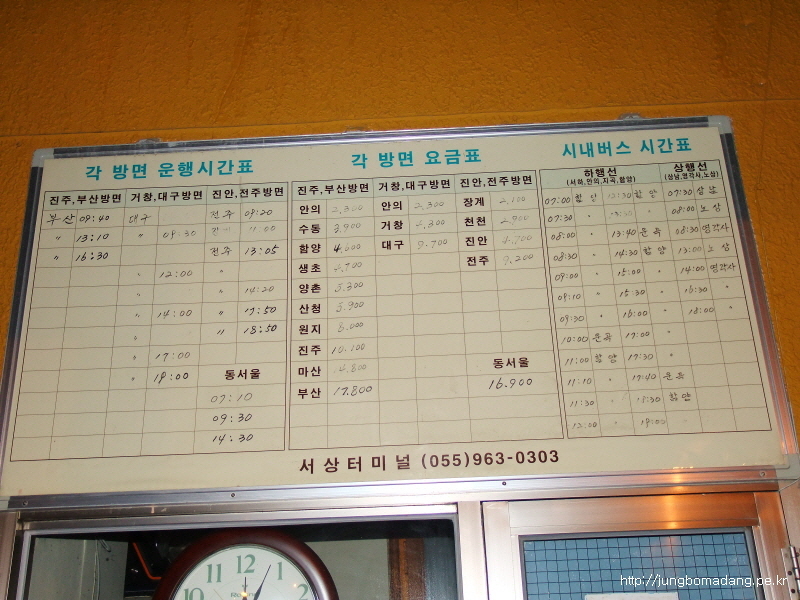 각 방면 운행시간표
진주,부산방면 거창,대구방면 진안,전주방면
부산 09:40 대구 전주 09:20
〃 13:10 〃 09:30 11:00
〃 16:30 전주 13:05
〃 12:00 〃
〃 〃 14:20
〃 14:00 〃 17:50
〃 〃 18:50
〃 17:00
〃 19:00 동서울
07:10
09:30
14:30
각 방면 요금표
진주,부산방면 거창,대구방면 진안,전주방면
안의 2,300 안의 2,300 장계 2,100
수동 3,900 거창 4,300 천천 2,900
함양 4,600 대구 9,700 진안 4,700
생초 4,700 전주 9,200
양촌 5,300
산청 5,900
원지 8,000
진주 10,100
마산
부산 17,800
동서울
16,900
시내버스 시간표
하행선 상행선
(서하,안의,지곡,함양) (상남,영각사,노상)
07:00 함양 함양 07:30 상남
07:30 〃 〃 08:00 노상
08:00 〃 13:40 운곡 08:30 영각사
08:30 〃 14:30 함양 13:00 노상
09:00 〃 15:00 〃 14:00 영각사
09:10 〃 15:30 〃 16:30 〃
09:30 〃 16:00 〃 18:00 〃
10:00 운곡 17:00 〃
11:00 함양 17:30 〃
11:10 〃 17:40 운곡
11:30 〃 18:30 함양
12:00 〃 19:00 〃
서상터미널 (055)963-0303
12
11 1
10 2
http://jungbomadang.pe.kr